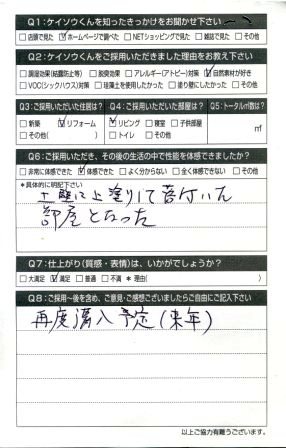 Q1：ケイソウくんを知ったきっかけをお聞かせ下さい
□店頭で見た ☑ホームページで調べた □NETショッピングで見た □雑誌で見た □その他
Q2：ケイソウくんをご採用いただきました理由をお教え下さい
□調湿効果（結露防止等） □脱臭効果 □アレルギー（アトピー）対策 ☑自然素材が好き
□VOC（シックハウス）対策 □珪藻土を使用したかった □塗り壁にしたかった □その他
Q3：ご採用いただいた住居は？ Q4：ご採用いただいた部屋は？ Q5：トータル㎡数は？
□新築 ☑リフォーム ☑リビング □寝室 □子供部屋
□その他（ ） □トイレ □その他 ㎡
Q6：ご採用いただき、その後の生活の中で性能を体感できましたか？
□非常に体感できた ☑体感できた □よく分からない □全く体感できない □その他
＊具体的に明記下さい
土壁に上塗りして落付いた
部屋となった
Q7：仕上がり（質感・表情）は、いかがでしょうか？
□大満足 ☑満足 □普通 □不満 ＊理由（ ）
Q8：ご採用～後を含め、ご意見・ご感想ございましたらご自由にご記入下さい
再度購入予定（来年）
以上ご協力有難うございます。